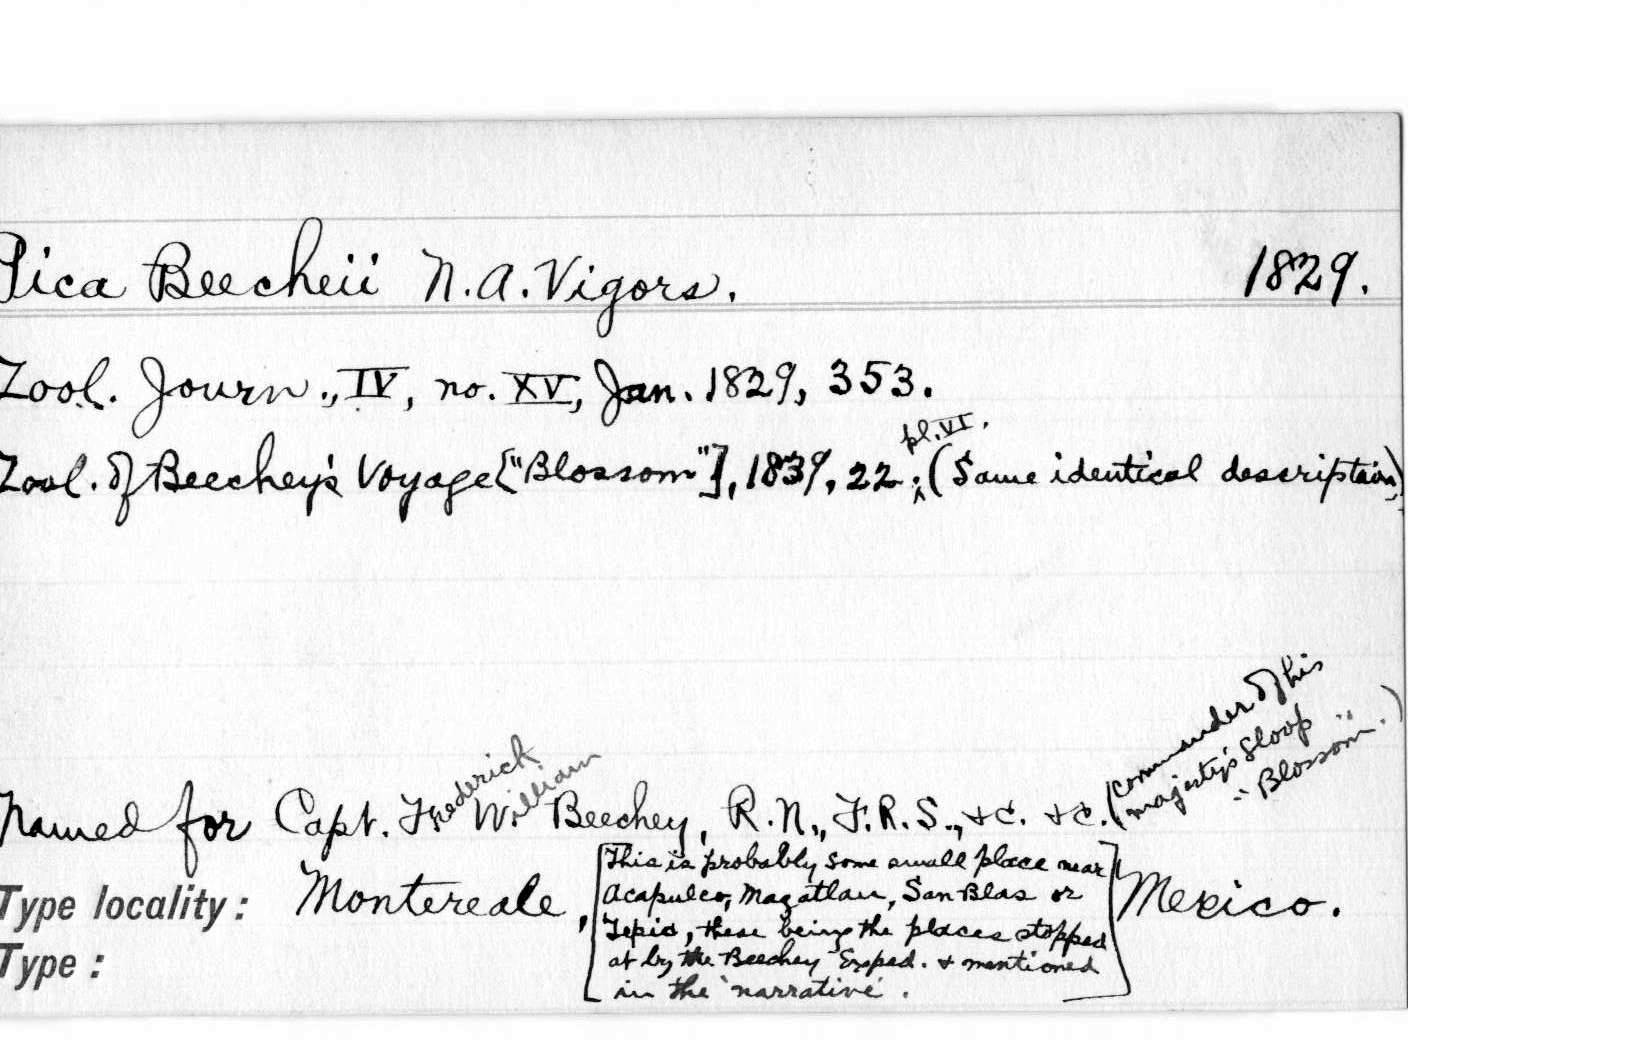 Pica Beecheii N.A. Vigors. 1829.
Zool. Journ., IV, no. XV, Jan. 1829, 353.
pl. VI.
Zool. of Beechey's Voyage ["Blossom"], 1839, 22 ; (Same identical description)
Named for Capt. Frederick William Beechey, R.N., F.R.S., &c. &c. (commander of his
majesty's sloop
"Blossom".)
Type locality: Montereale, [This is probably some small place near
Acapulco, Mazatlan, San Blas or
Tepic, these being the places stopped
at by the Beechey Exped. & mentioned
in the 'narrative'.] Mexico.
Type: